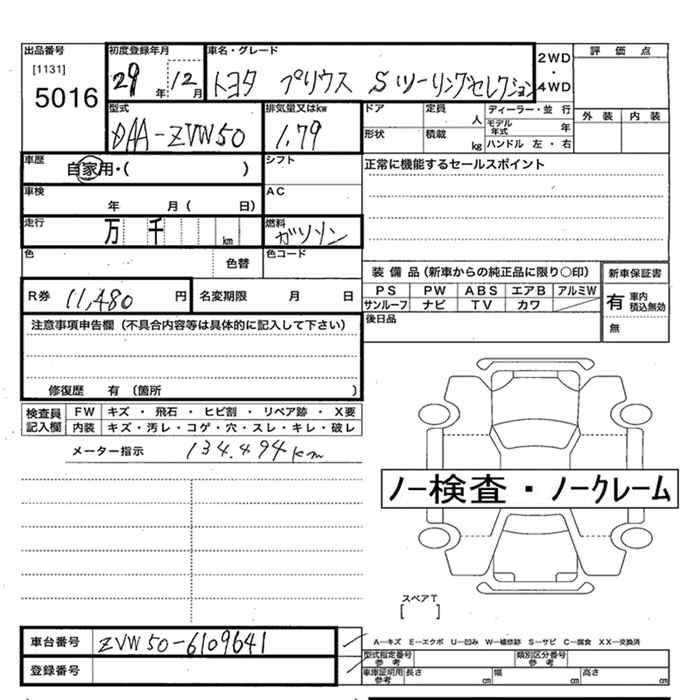 出品番号 初度登録年月 車名・グレード 評価点
[1131] 5016 29年 12月 トヨタ プリウス Sツーリングセレクション 2WD・4WD
型式 排気量又はkw ドア 定員 人 ディーラー・並行 外装 内装
DAA-ZVW50 1.79 形状 積載 kg モデル年式 年
ハンドル 左・右
車歴 自家用・( ) シフト 正常に機能するセールスポイント
車検 年 月( 日) AC
走行 万 千 km 燃料 ガソリン
色 色替 色コード 装備品(新車からの純正品に限り○印) 新車保証書
PS PW ABS エアB アルミW 有 車内積込無効
R券 11,480 円 名変期限 月 日 サンルーフ ナビ TV カワ 無
注意事項申告欄(不具合内容等は具体的に記入して下さい) 後日品
修復歴 有 (箇所 )
検査員記入欄 FW キズ・飛石・ヒビ割・リペア跡・X要
内装 キズ・汚レ・コゲ・穴・スレ・キレ・破レ
メーター指示 134,494km
ノー検査・ノークレーム
スペアT
[ ]
車台番号 ZVW50-6109641
A-キズ E-エクボ U-凹み W-補修跡 S-サビ C-腐食 XX-交換済
登録番号 型式指定番号 参考 類別区分番号 参考
車庫証明用 参考 長さ cm 幅 cm 高さ cm